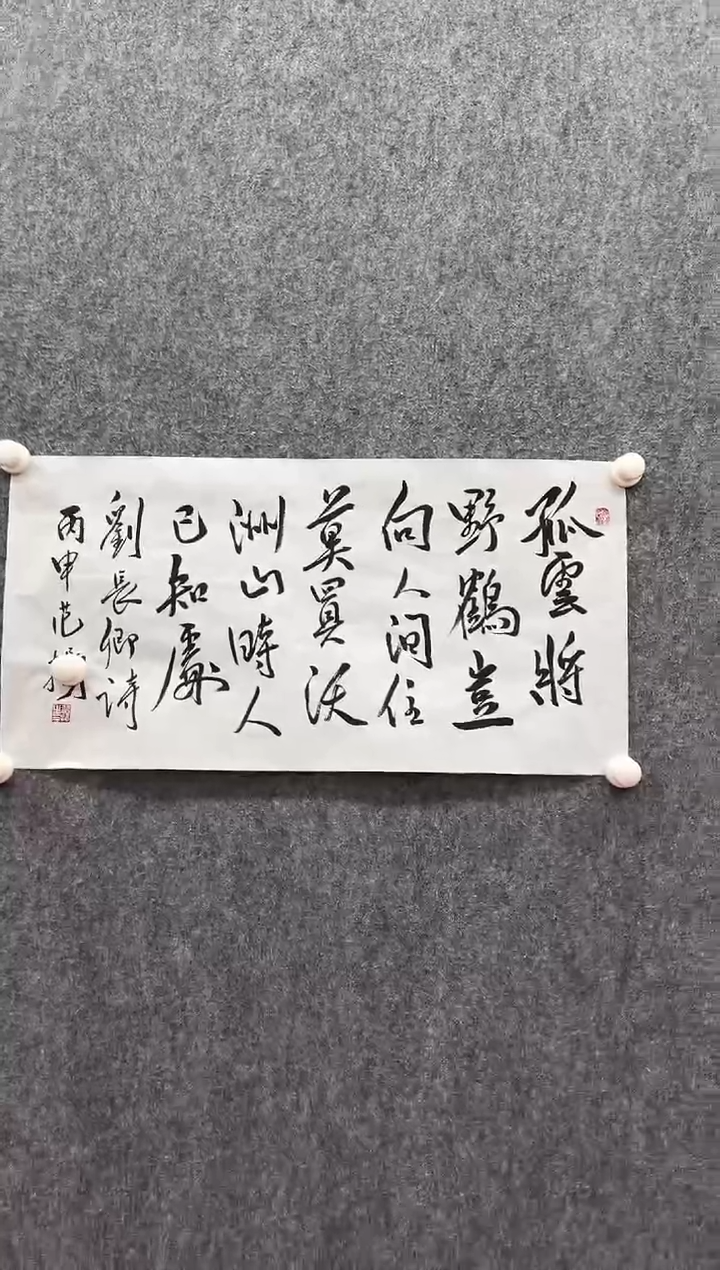 孤雲將
野鶴豈
向人间住
莫買沃
洲山時人
已知處
劉長卿詩
丙申范